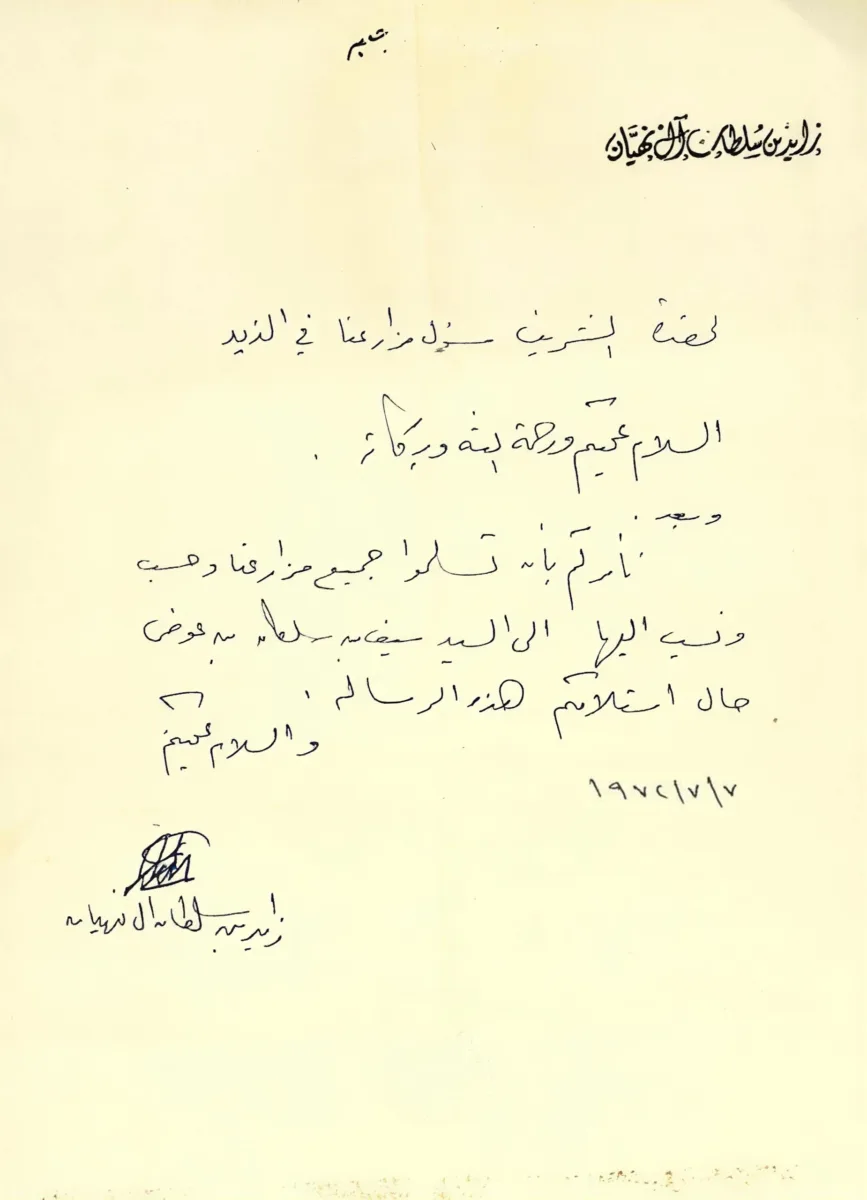 زايد بن سلطان آل نهيان
لحضرة الشريف مسؤل مزارعنا في الذيد
السلام عليكم ورحمة الله وبركاته .
وبعد .
نأمركم بأن تسلموا جميع مزارعنا وحسب
ونسب اليها الى السيد سيف بن سلطان بن عوض
حال استلامكم هذه الرسالة .
والسلام عليكم
١٩٧٢/٧/٧
زايد بن سلطان ال نهيان